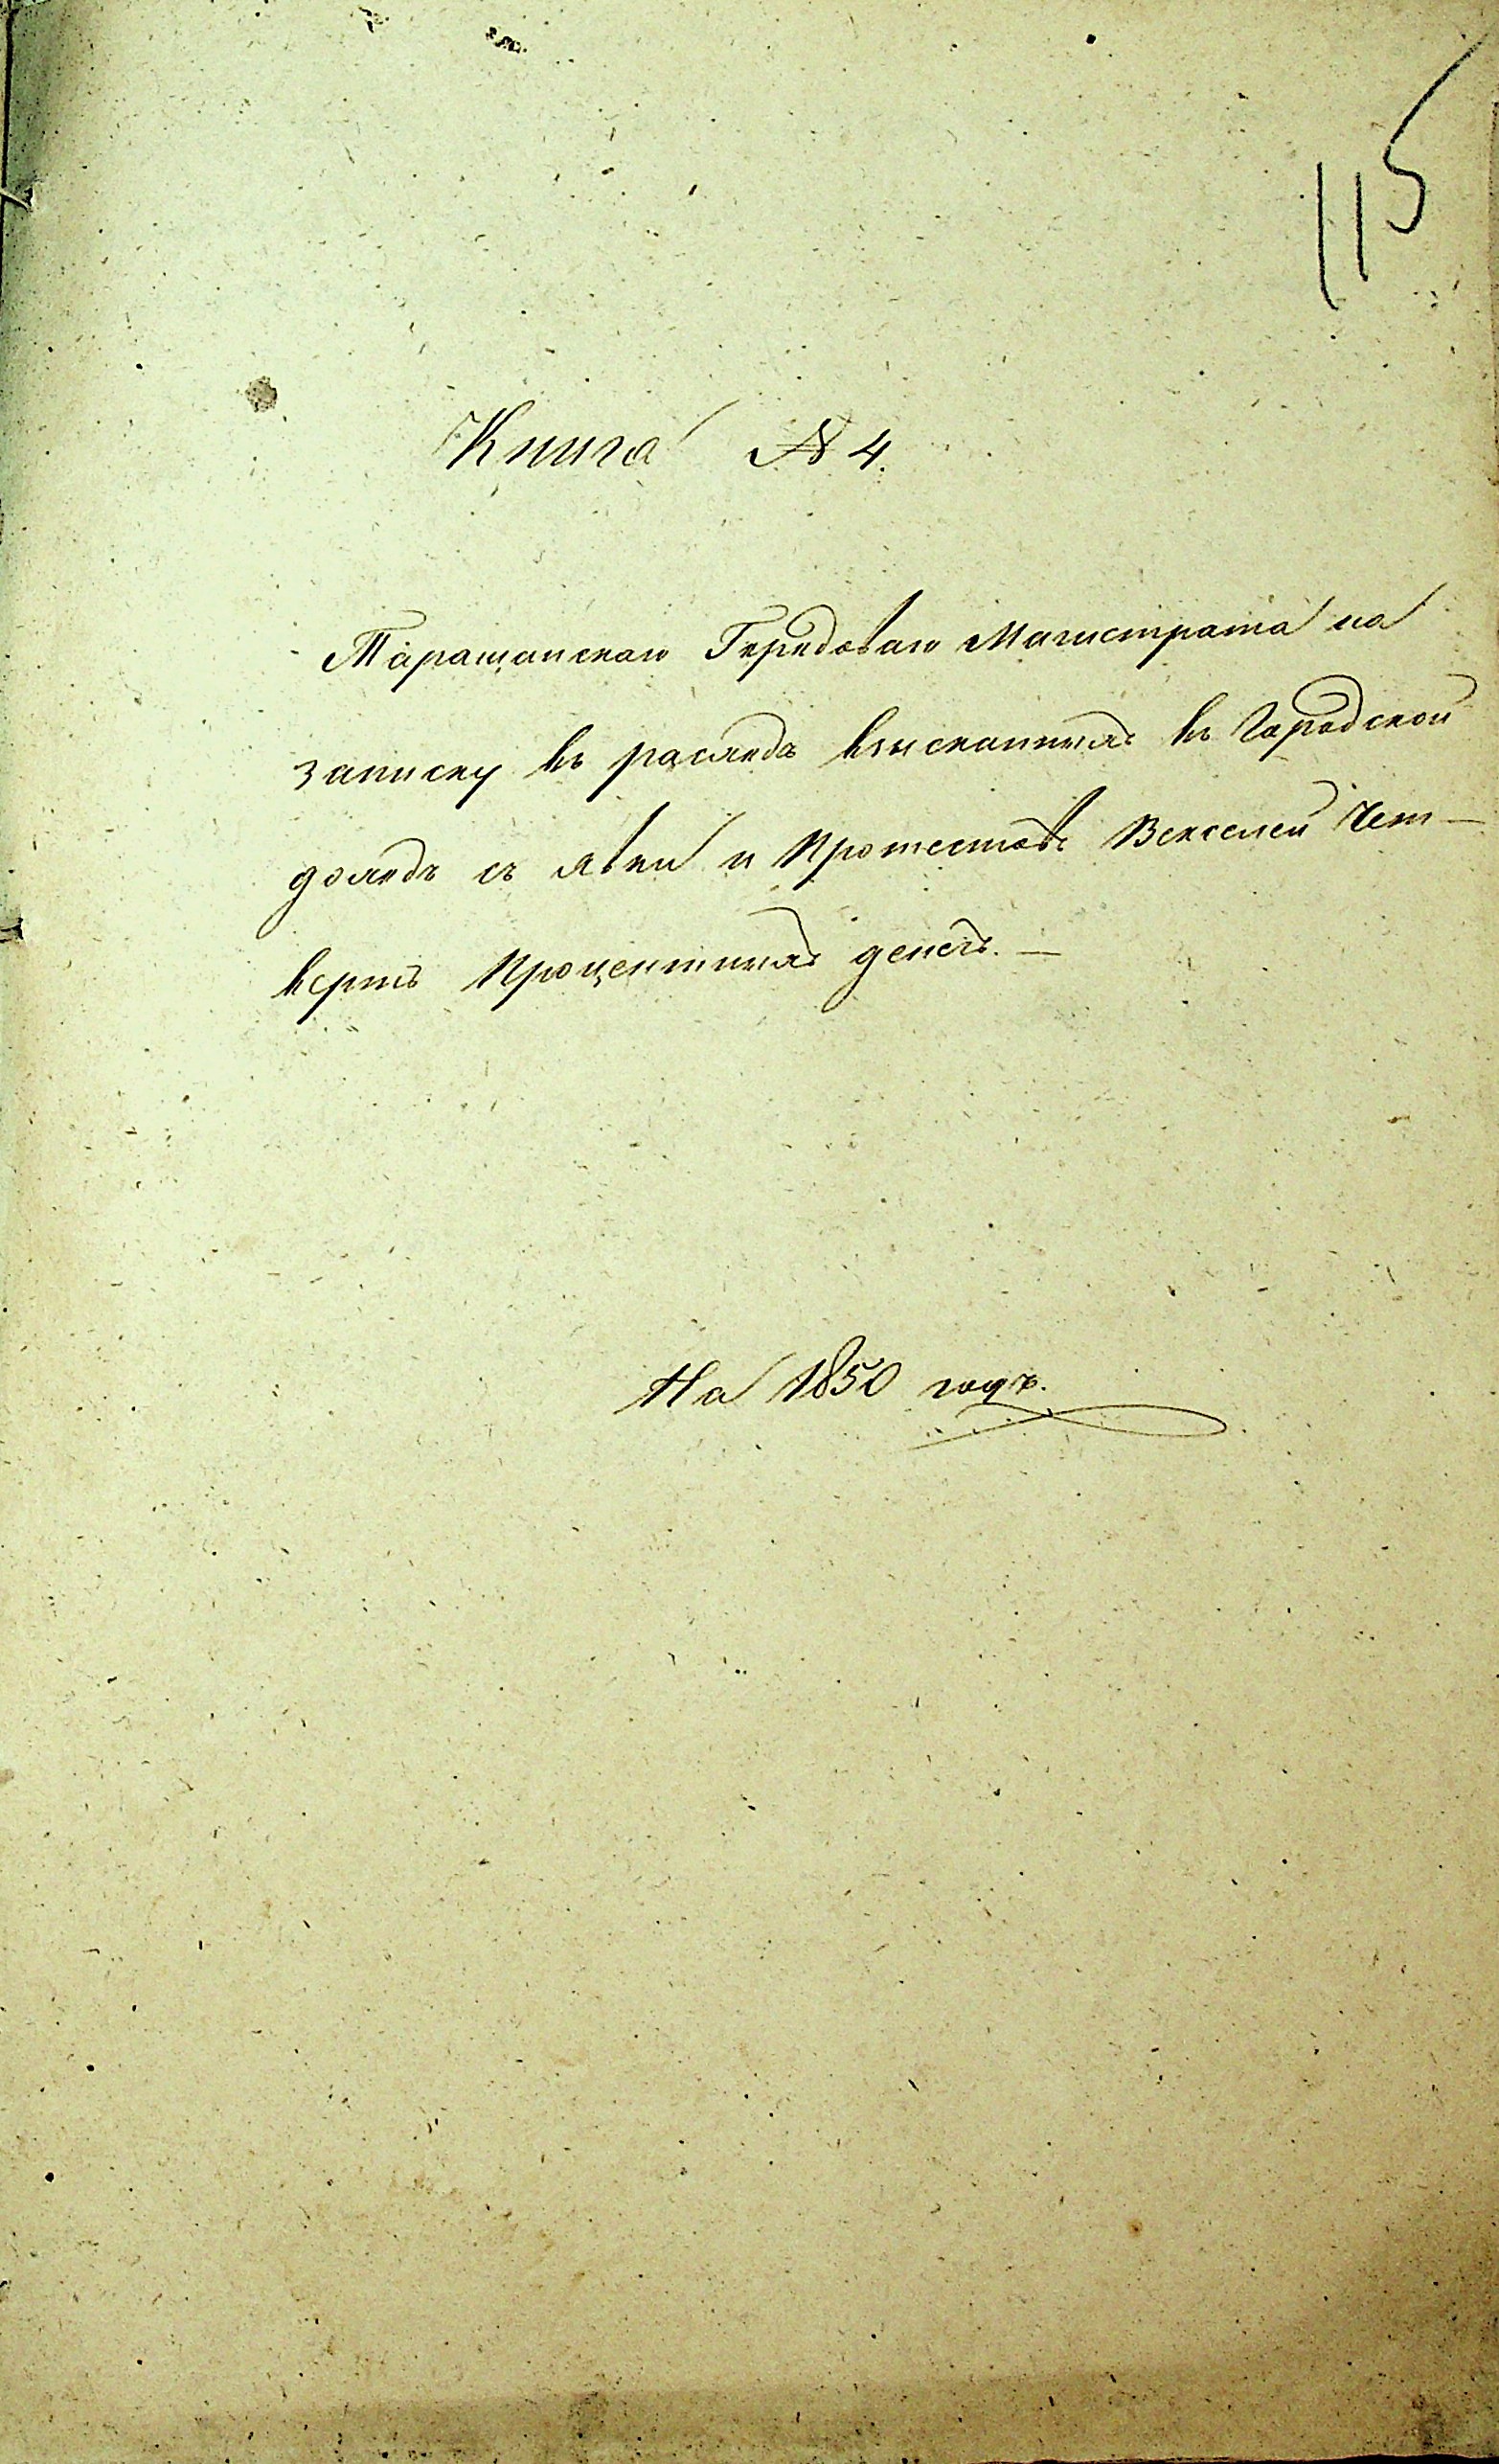 115
Книга № 4.
Таращанского Городоваго Магистрата на
записку въ расходъ взысканныхъ въ Городской
доходъ съ явки и Протестовъ Векселей Чет-
верть Процентныхъ денегъ. —
На 1850 годъ.